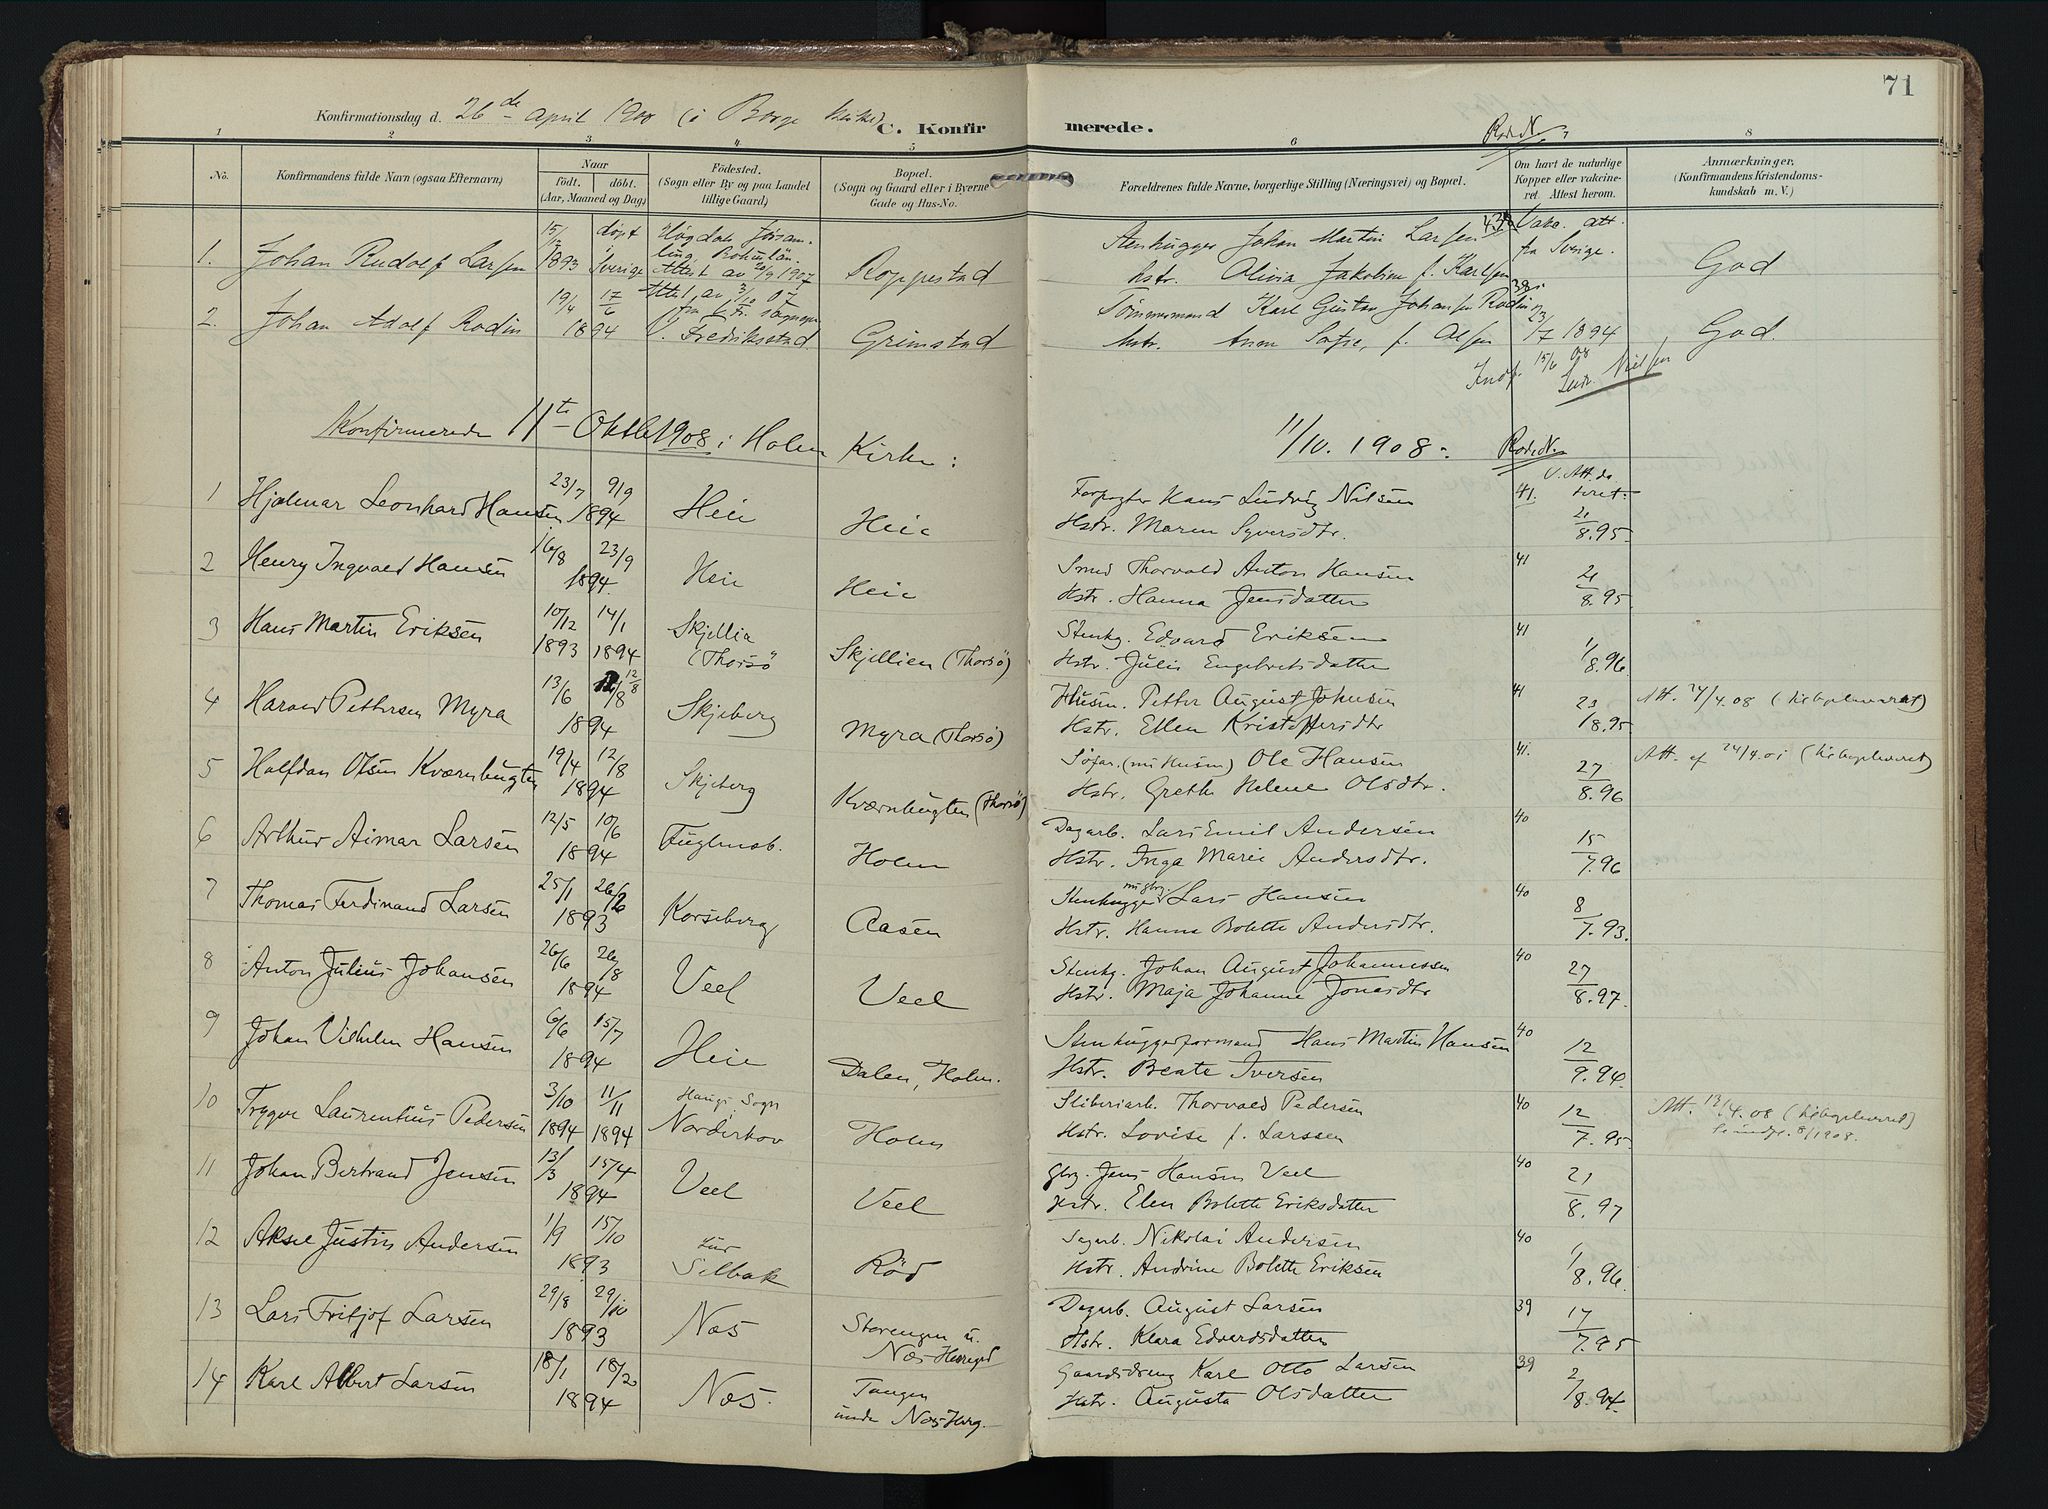 71
Konfirmationsdag d. 26de April 1908 (i Borge Kirke)
C. Konfirmerede.
Rode N.
1 2 3 4 5 6 7 8
No.
Konfirmandens fulde Navn (ogsaa Efternavn)
Naar
født. døbt.
(Aar, Maaned og Dag)
Födested.
(Sogn eller By og paa Landet
tillige Gaard)
Bopæl.
(Sogn og Gaard eller i Byerne
Gade og Hus-No.
Forældrenes fulde Navne, borgerlige Stilling (Næringsvei) og Bopæl.
Om havt de naturlige
Kopper eller vakcine-
ret. Attest herom.
Anmærkninger.
(Konfirmandens Kristendoms-
kundskab m. V.)
1. Johan Rudolf Larsen
15/12 1893
döpt i Sverige
Högdals försam-
ling, Bohuslän.
Attest av 20/9 1907
Roppestad
Stenhugger Johan Martin Larsen
Hstr. Olivia Jakobine f. Karlsen
43
Vakc. att.
fra Sverige.
God
2. Johan Adolf Rodin
19/4 17/6
1894
Attest av 3/10 07
Ö. Fredriksstad
Grimstad
Tömmermand Karl Gustav Johansen Rodin
Hstr. Anna Sofie, f. Olsen
23/7 1894
God.
Indf. 15/6 08
Nielsen
Konfirmerede 11te Oktbr 1908 i Holm Kirke:
11/10. 1908.
Rode N.
V. Att. da-
teret:
1 Hjalmar Leonhard Hansen
23/7 9/9
1894
Heie
Heie
Forpagter Hans Ludvig Nilsen
Hstr. Maren Syversdtr.
41.
21/8.95.
2 Henry Ingvald Hansen
16/8 23/9
1894.
Heie
Heie
Smed Thorvald Anton Hansen
Hstr. Hanna Jensdatter
41
21/8.95.
3 Hans Martin Eriksen
10/12 1893
14/1 1894
Skjellia
(Thorsö
Skjellien (Thorsö)
Stenhg. Edvard Eriksen
Hstr. Julie Engebretsdatter
41
1/8.96.
4 Harald Pettersen Myra
13/6 12/8
1894
Skjeberg
Myra (Thorsö)
Husm. Petter August Johnsen
Hstr. Ellen Kristoffersdtr
41
23/8.95
Att. 24/4.08 (kirkeplevaret)
5 Halfdan Olsen Kværnbugten
19/4 12/8
1894
Skjeberg
Kværnbugten (Thorsö)
Söfar. (nu Husm) Ole Hansen
Hstr. Grethe Helene Olsdtr.
41.
27/8.96
Att. af 24/4.01
6 Arthur Aimar Larsen
12/5 10/6
1894
Fuglensb.
Holm
Dagarb. Lars Emil Andersen
Hstr. Inga Marie Andersdtr.
40
15/7.96
7 Thomas Ferdinand Larsen
25/1 26/2
1893
Korseberg
Aasen
Stenhugger Lars Hansen
Hstr. Hanna Bolette Andersdtr.
40
8/7.93.
8 Anton Julius Johansen
26/6 26/8
1894
Veel
Veel
Stenhg. Johan August Johannessen
Hstr. Maja Johanne Jonasdtr
40
27/8.97.
9 Johan Vilhelm Hansen
6/6 15/7
1894
Heie
Dalen, Holm.
Stenhuggerformand Hans Martin Hansen
Hstr. Beate Iversen
40
12/9.94.
10 Trygve Laurentius Pedersen
3/10 1894
11/11 1894
Haugs Sogn
i Norderhov
Holm
Sliberiarb. Thorvald Pedersen
Hstr. Lovise f. Larssen
40
12/7.95
Att. 13/4.08
11 Johan Bertrand Jensen
13/3 15/4
1894
Veel
Veel
Gbrg. Jens Hansen Veel
Hstr. Elen Bolette Eriksdatter
40
21/8.97
12 Aksel Justin Andersen
1/9 15/10
1893
Lur
Selbak
Röd
Dagarb. Nikolai Andersen
Hstr. Andrine Bolette Eriksen
40
1/8.96.
13 Lars Fritjof Larsen
29/8 29/10
1893
Næs
Storengen u.
Næs Herregd
Dagarb. August Larsen
Hstr. Klara Edvardsdatter
39
17/7.95
14 Karl Albert Larsen
18/1 18/2
1894
Næs.
Tangen
under Næs Herg.
Gaardsdreng Karl Otto Larsen
Hstr. Augusta Olsdatter
39
2/8.94.